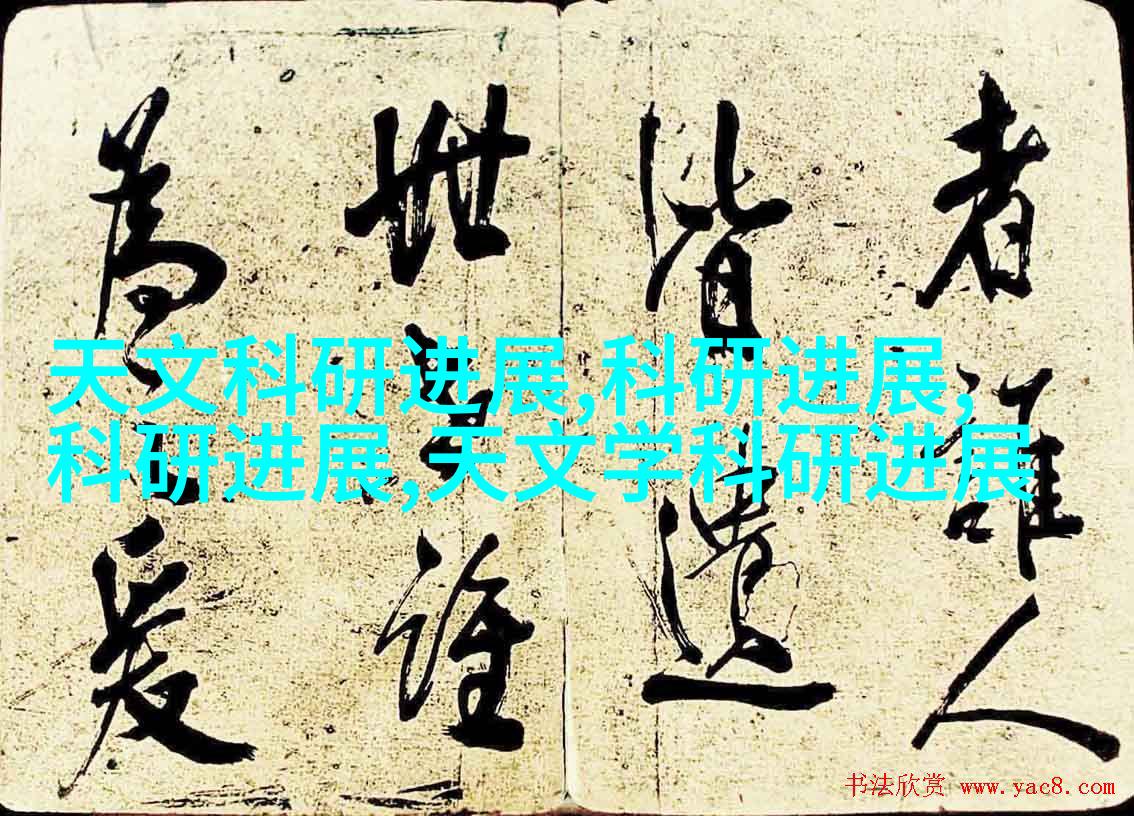 者誰人
皆遺
世誰
為爰
天文科研进展,科研进展,
科研进展,天文学科研进展
书法欣赏 www.yac8.com